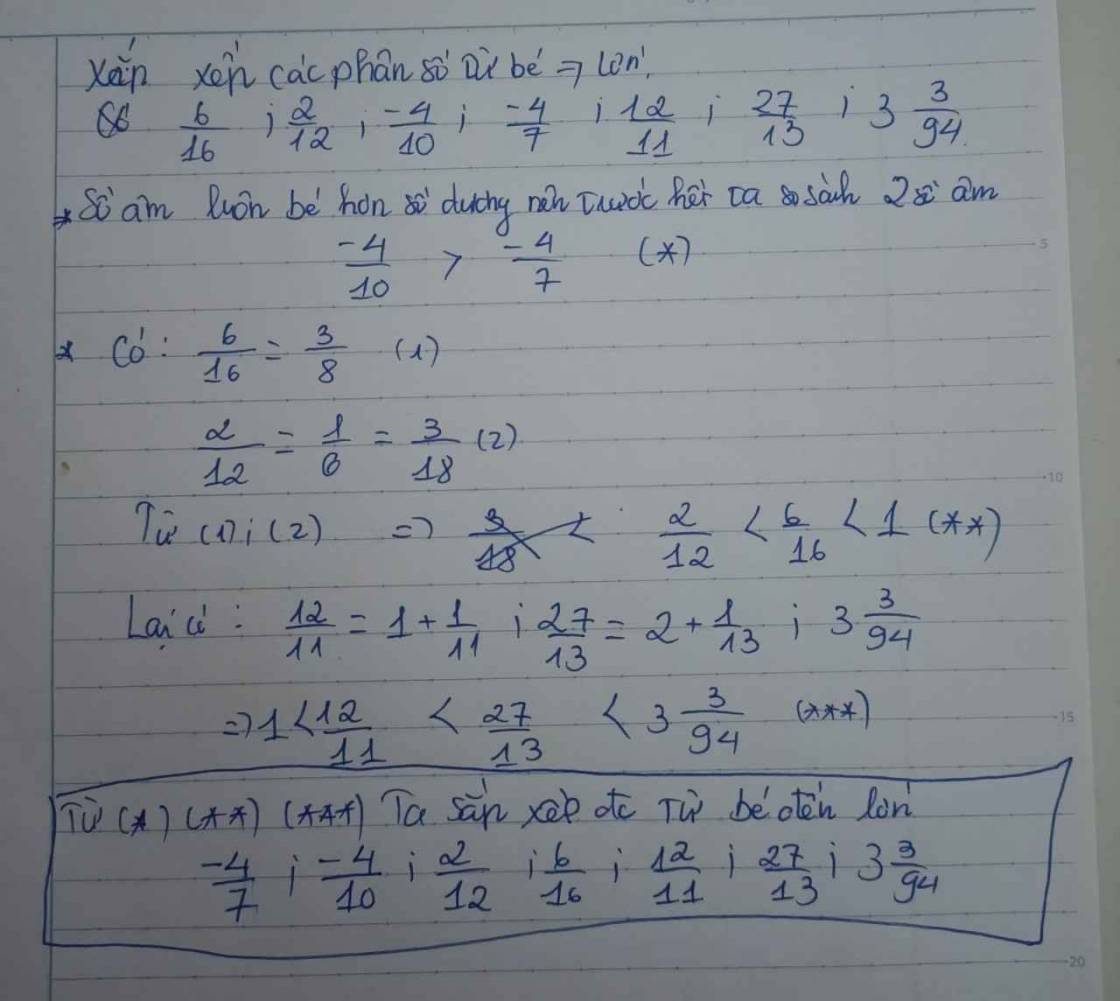 Xắp xếp các phân số từ bé → lớn.
6/16 ; 2/12 ; -4/10 ; -4/7 ; 12/11 ; 27/13 ; 3 3/94
* Số âm luôn bé hơn số dương nên trước hết ta so sánh 2 số âm
-4/10 > -4/7 (*)
* Có : 6/16 = 3/8 (1)
2/12 = 1/6 = 3/18 (2)
Từ (1) ; (2) => 2/12 < 6/16 < 1 (**)
Lại có : 12/11 = 1 + 1/11 ; 27/13 = 2 + 1/13 ; 3 3/94
=> 1 < 12/11 < 27/13 < 3 3/94 (***)
Từ (*) (**) (***) Ta sắp xếp đc từ bé đến lớn
-4/7 ; -4/10 ; 2/12 ; 6/16 ; 12/11 ; 27/13 ; 3 3/94
5
10
15
20